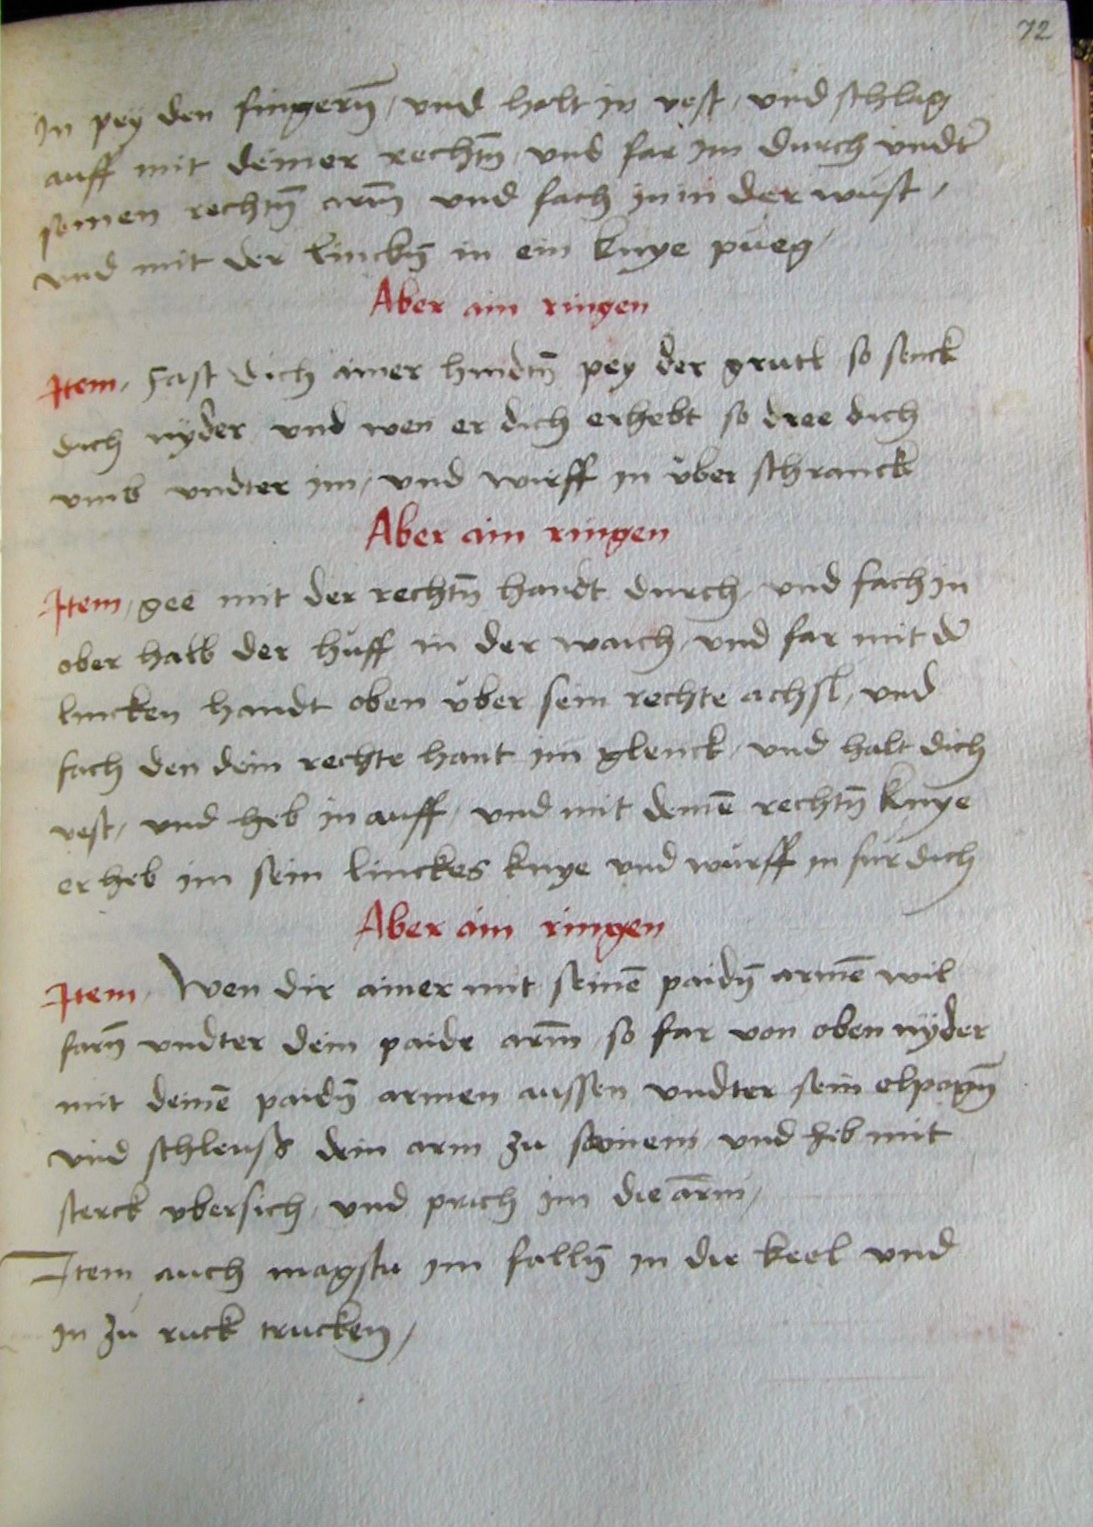 72
In pey den fingern̄ / vnd halt in vest / vnd schlag
auff mit deiner rechtn̄ / vnd far im durch vndt̄
seinen rechtn̄ arm̄ vnd fach in in der wüst /
vnd mit der linckn̄ in ein knye pueg /
Aber ain ringen
Item / Fast dich ainer hindtn̄ pey der gurtl so senck
dich nyder vnd wen er dich erhebt so dree dich
vmb vndter im / vnd wirff in über schranck
Aber ain ringen
Item / gee mit der rechtn̄ handt durch / vnd fach in
ober halb der huff in der waich / vnd far mit d̄
lincken handt oben über sein rechte achsl / vnd
fach den dein rechte hant im glenck / vnd halt dich
vest / vnd heb in auff / vnd mit deinē rechtn̄ knye
er heb im sein linckes knye vnd würff in für dich
Aber ain ringen
Item / Wen dir ainer mit seinē paidn̄ armē wil
farn̄ vndter dein paide arm̄ so far von oben nyder
mit deinē paidn̄ armen aussen vndter sein elpogn̄
vnd schleuss dein arm zu seinem / vnd heb mit
sterck vbersich / vnd prich im die arm /
Item auch magstu im falln̄ in die keel vnd
in zu ruck trucken /